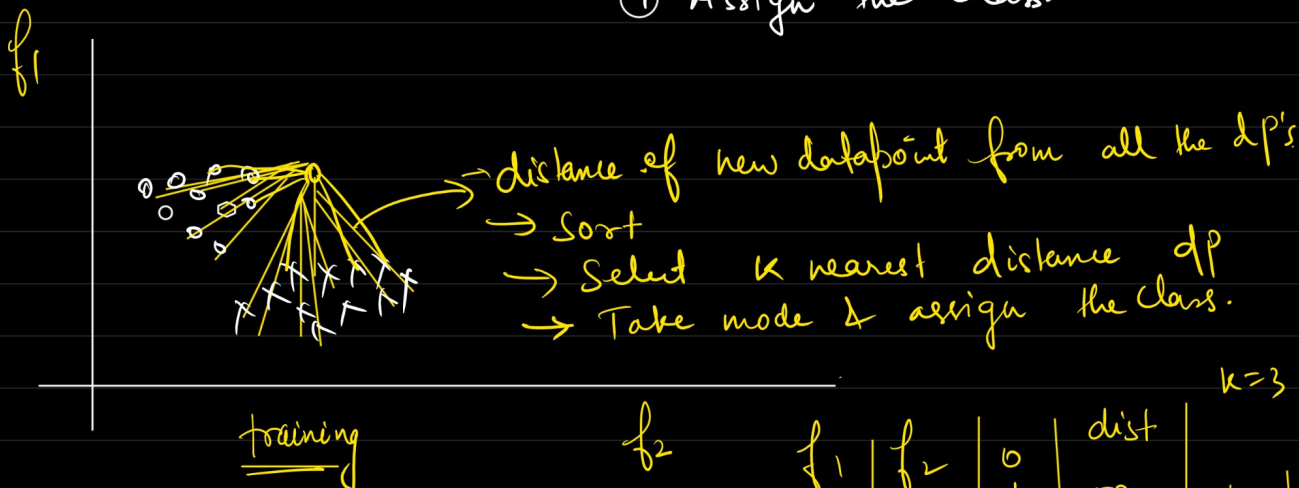 ① Assign the class
f1
→ distance of new datapoint from all the dp's
→ Sort
→ Select K nearest distance dp
→ Take mode & assign the class.
K=3
training
f2
f1 | f2 | 0 | dist |